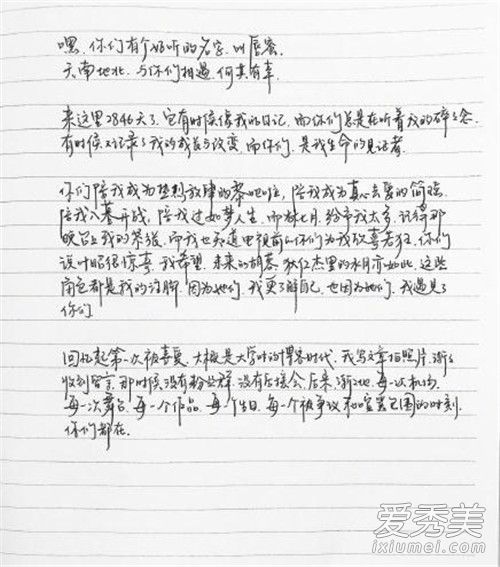 嘿，你们有个好听的名字，叫唇蜜。
天南地北，与你们相遇，何其有幸。
来这里2846天了，它有时候像我的日记，而你们总是在听着我的碎碎念，
有时候又记录了我的成长与改变，而你们，是我生命的见证者。
你们陪我成为热烈放肆的
陪我成为真心去爱的简瑶
陪我入暮开战，陪我过如梦人生，而林七月，给予我太多，记得那
晚台上我的紧张，而我也知道电视前的你们为我欢喜若狂，你们
说叶昭很惊喜，我希望，未来的胡慕，狄仁杰里的水月亦如此，这些
角色都是我的注脚，因为她们，我更了解自己，也因为她们，我遇见了
你们。
回忆起第一次被喜爱，大概是大学时的博客时代，我写文章拍照片，渐渐
收到留言，那时候没有粉丝群，没有后援会，后来，渐渐地，每一次机场，
每一次舞台，每一个作品，每一个生日，每一个被争议和喧嚣包围的时刻，
你们都在。
爱秀美
ixiumei.com